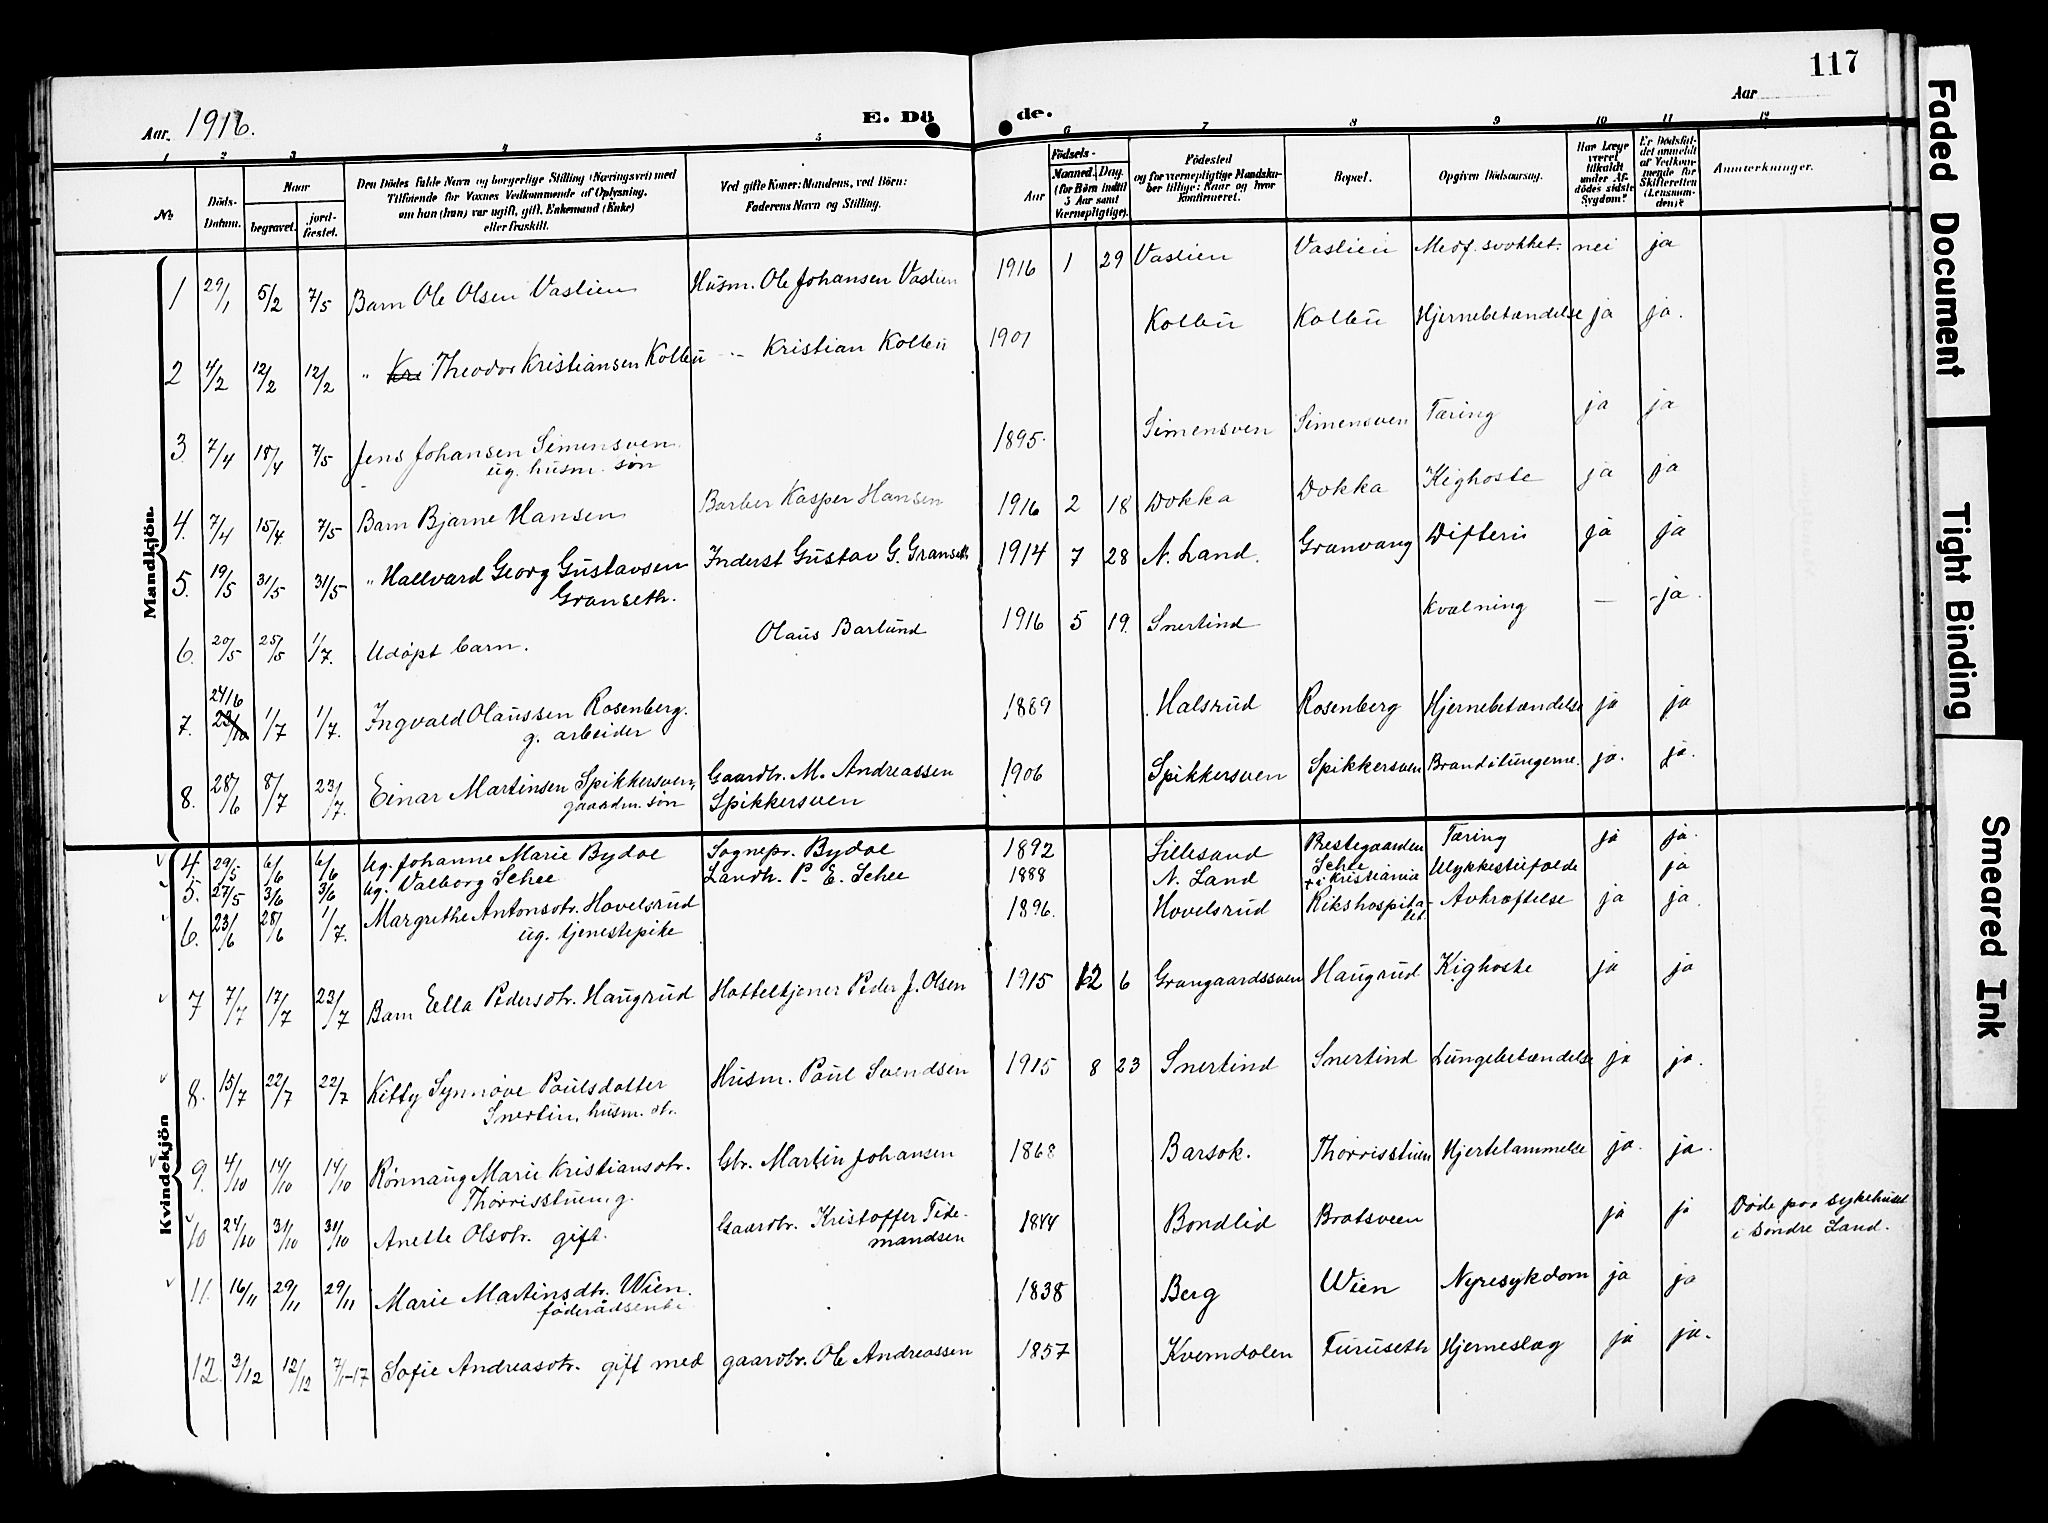 117
Aar. 1916.
E. Dö
de.
Aar
1 2 3 4 5 6 7 8 9 10 11 12
No
Döds-Datum.
Naar
begravet.
jord-fæstet.
Den Dödes fulde Navn og borgerlige Stilling (Næringsvei) med
Tilföiende for Voxnes Vedkommende af Oplysning,
om hun (han) var ugift, gift, Enkemand (Enke)
eller fraskilt.
Ved gifte Koner: Mandens, ved Börn:
Faderens Navn og Stilling.
Födsels-
Aar
Maaned. Dag.
(for Börn indtil
5 Aar samt
Værnepligtige).
Födested
og for værnepligtige Mandska-
ber tillige: Naar og hvor
konfirmeret.
Bopæl.
Opgiven Dödsaarsag.
Har Læge
været
tilkaldt
under Af-
dödes sidste
Sygdom?
Er Dödsfal-
det anmeldt
af Vedkom-
mende for
Skifteretten
(Lensman-
den)?
Anmærkninger.
Mandkjön.
1 29/1 5/2 7/5 Barn Ole Olsen Vaslien Husm. Ole Johansen Vaslien 1916 1 29 Vaslien Vaslien Medf. svakhet. nei ja
2 4/2 12/2 12/2 " Kri Theodor Kristiansen Kolbu - - Kristian Kolbu 1901 Kolbu Kolbu Hjernebetændelse ja ja.
3. 7/4 18/4 7/5 Jens Johansen Simensven 1895. Simensven Simensven Tæring ja ja
ug. husm. søn
4. 7/4 15/4 7/5 Barn Bjarne Hansen Barber Kasper Hansen 1916 2 18 Dokka Dokka Kighoste ja ja
5. 19/5 31/5 31/5 " Hallvard Georg Gustavsen Inderst Gustav G. Granseth 1914 7 28 N. Land. Granvang Difteri ja ja
Granseth.
6. 20/5 25/5 1/7. Udøpt barn. Olaus Barlund 1916 5 19. Snertind Kvælning — -ja.
24/6
7. 23/10 1/7 1/7. Ingvald Olaussen Rosenberg. 1889 Halsrud Rosenberg Hjernebetændelse ja ja
g. arbeider
8. 28/6 8/7 23/7. Einar Martinsen Spikkersven, Gaardbr. M. Andreassen 1906 Spikkersven Spikkersven Brand i lungerne. ja. ja.
gaardm. søn Spikkersven
Kvindekjön
4 29/5 6/6 6/6 Ug. Johanne Marie Bydal Sognepr. Bydal 1892 Lillesand Prestegaarden Tæring ja ja.
5. 27/5 3/6 3/6 Ug. Valborg Schee Landh. P. E. Schee 1888 N. Land Schee Ulykkestilfælde ja
+ i Kristiania
6. 23/6 28/6 1/7. Margrethe Antonsdtr. Hovelsrud 1896. Hovelsrud Rikshospita- Avkræftelse ja ja.
ug. tjenestepike let
7 7/7 17/7 23/7 Barn Ella Pedersdtr. Haugrud Hotteltjener Peder J. Olsen 1915 12 6 Grangaardssven Haugrud Kighoste ja ja
8. 15/7 22/7 22/7 Kitty Synnøve Paulsdatter Husm. Paul Svendsen 1915 8 23 Snertind Snertind Lungebetændelse ja ja.
Snertin, husm. dt.
9. 4/10 14/10 14/10 Rønnaug Marie Kristiansdtr. Gbr. Martin Johansen 1868 Barsok. Thorrisstuen Hjertelammelse ja. ja.
Thorrisstuen, g.
10 24/10 31/10 31/10 Anette Olsdtr. gift. Gaardbr. Kristoffer Tide- 1844 Bondlid Bratsveen ja ja Døde paa sykehuset
mandsen i Søndre Land.
11. 16/11 29/11 29/11 Marie Martinsdtr. Wien. 1838 Berg Wien Nyresykdom ja ja
føderådsenke
12. 3/12 12/12 7/1-17 Sofie Andreasdtr. gift med gaardbr. Ole Andreassen 1857 Kvemdalen Furuseth Hjerneslag ja ja.
Faded Document
Tight Binding
Smeared Ink